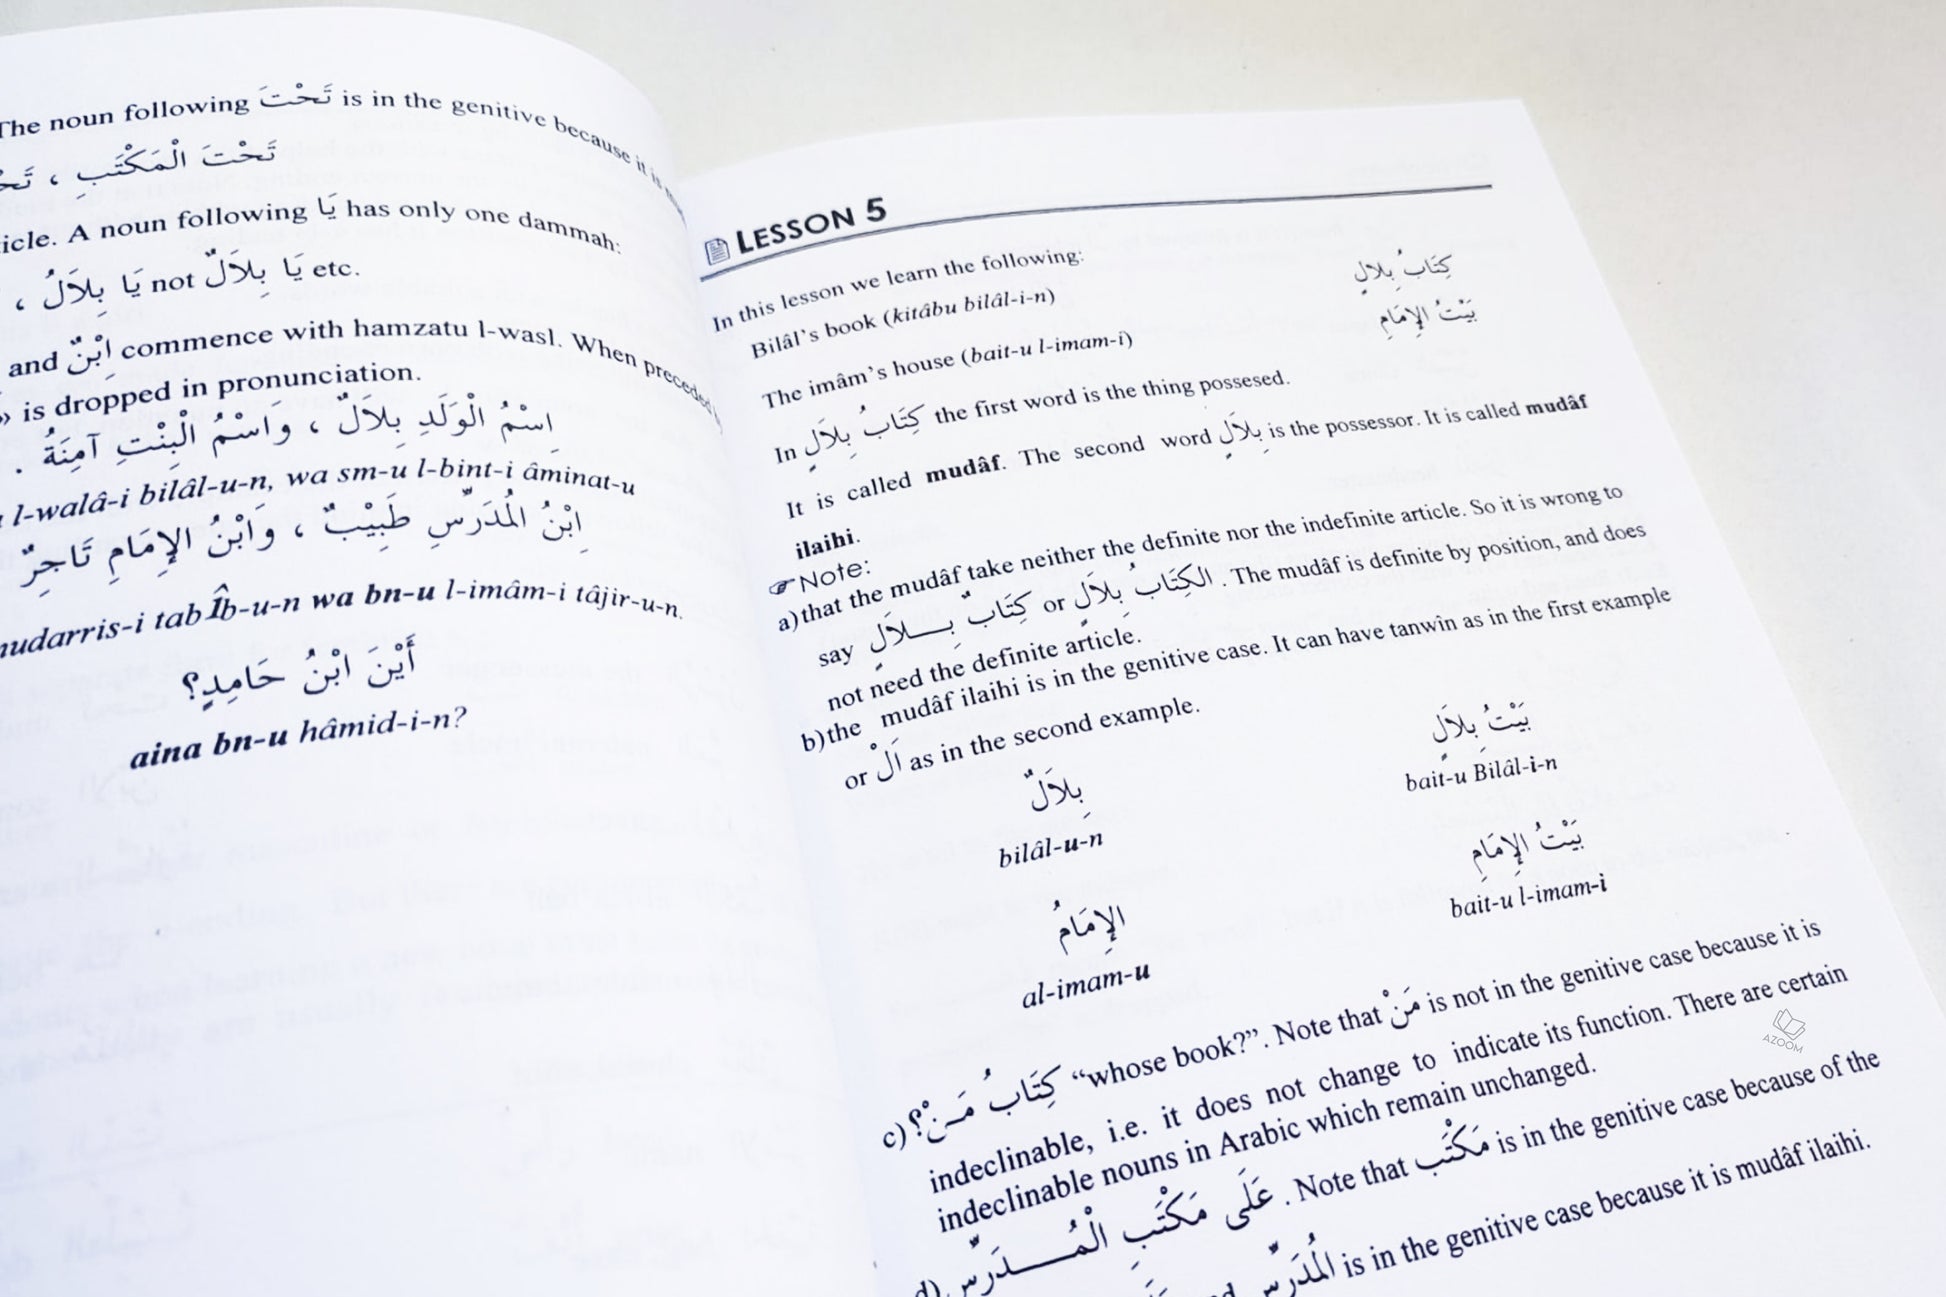 The noun following تَحْتَ is in the genitive because it is
تَحْتَ الْمَكْتَبِ ،
icle. A noun following يَا has only one dammah:
، يَا بِلَالُ not يَا بِلَالٌ etc.
and اِبْنٌ commence with hamzatu l-wasl. When preceded
» is dropped in pronunciation.
اِسْمُ الْوَلَدِ بِلَالٌ ، وَاسْمُ الْبِنْتِ آمِنَةُ .
l-walâ-i bilâl-u-n, wa sm-u l-bint-i âminat-u
اِبْنُ الْمُدَرِّسِ طَبِيْبٌ ، وَابْنُ الإِمَامِ تَاجِرٌ
mudarris-i tabÎb-u-n wa bn-u l-imâm-i tâjir-u-n.
أَيْنَ ابْنُ حَامِدٍ؟
aina bn-u hâmid-i-n?
LESSON 5
In this lesson we learn the following:
Bilâl's book (kitâbu bilâl-i-n) كِتَابُ بِلَالٍ
The imâm's house (bait-u l-imam-i) بَيْتُ الإِمَامِ
In كِتَابُ بِلَالٍ the first word is the thing possesed.
It is called mudâf. The second word بِلَالٍ is the possessor. It is called mudâf
ilaihi.
☞Note:
a)that the mudâf take neither the definite nor the indefinite article. So it is wrong to
say كِتَابٌ بِـــلَالٍ or الكِتَابُ بِلَالٍ . The mudâf is definite by position, and does
not need the definite article.
b)the mudâf ilaihi is in the genitive case. It can have tanwîn as in the first example
or اَلْ as in the second example.
بِلَالٌ بَيْتُ بِلَالٍ
bilâl-u-n bait-u Bilâl-i-n
الإِمَامُ بَيْتُ الإِمَامِ
al-imam-u bait-u l-imam-i
c)كِتَابُ مَـنْ؟ “whose book?”. Note that مَنْ is not in the genitive case because it is
indeclinable, i.e. it does not change to indicate its function. There are certain
indeclinable nouns in Arabic which remain unchanged.
d)عَلَى مَكْتَبِ الْمُـــدَرِّسِ . Note that مَكْتَبِ is in the genitive case because of the
الْمُدَرِّسِ is in the genitive case because it is mudâf ilaihi.
AZOOM